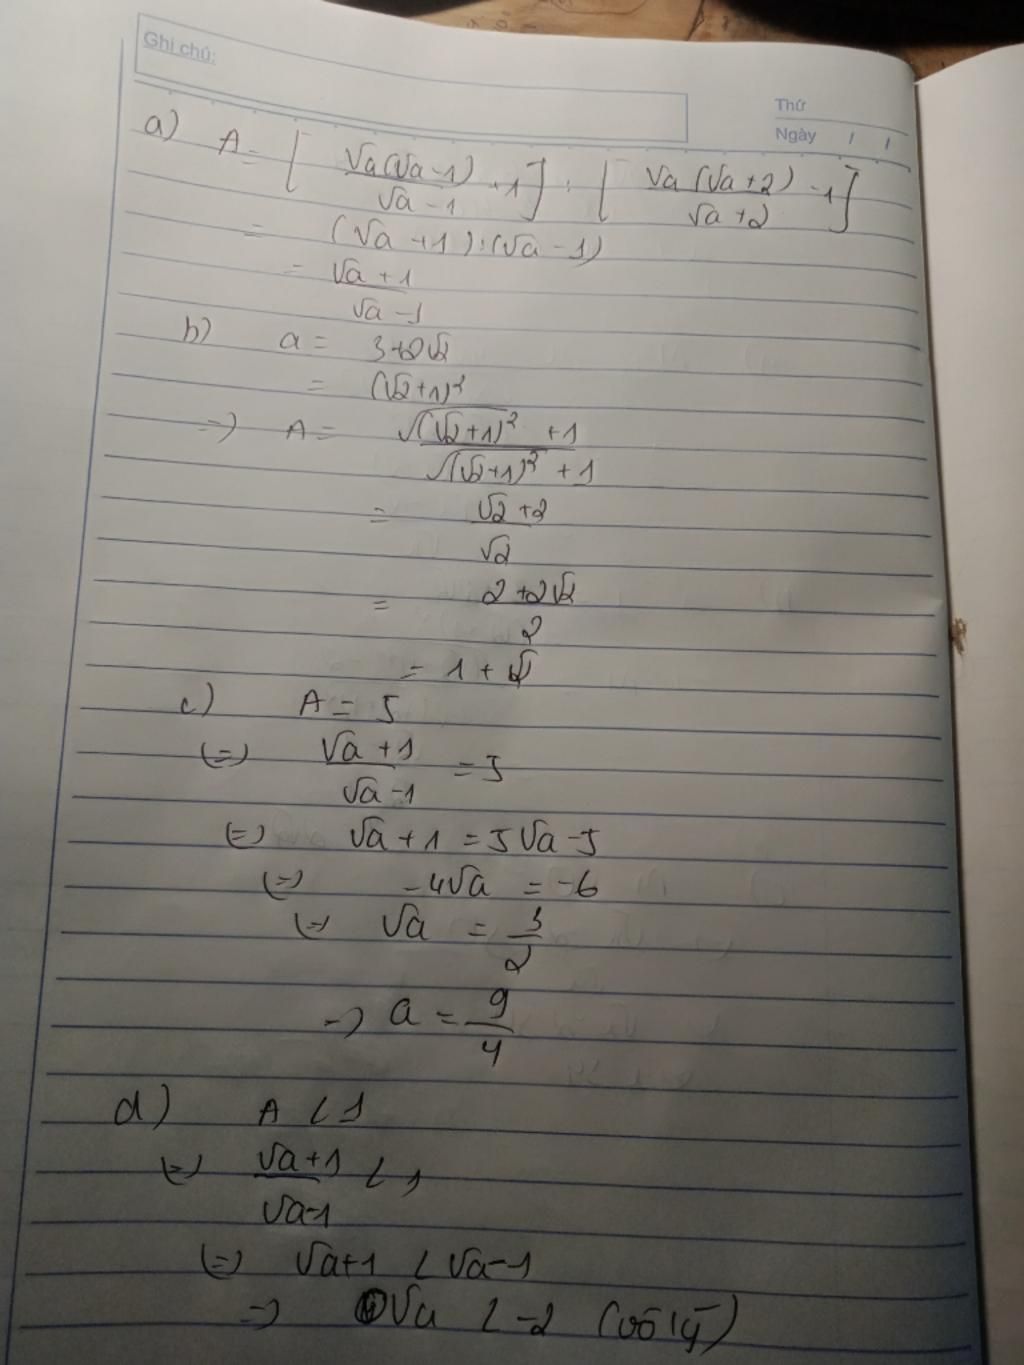 Ghi chú:
Thứ
Ngày / /
a) A = [ √a(√a-1)/√a-1 +1 ] : [ √a(√a+2)/√a+2 -1 ]
= (√a+1):(√a-1)
= √a+1/√a-1
b) a = 3+2√2
= (√2+1)²
=> A = √(√2+1)² +1/√(√2+1)² +1
= √2+2/√2
= 2+2√2/2
= 1+√2
c) A = 5
(=) √a+1/√a-1 = 5
(=) √a+1 = 5√a-5
(=) -4√a = -6
(=) √a = 3/2
=> a = 9/4
d) A < 1
(=) √a+1/√a-1 < 1
(=) √a+1 < √a-1
=> √a < -2 (vô lý)